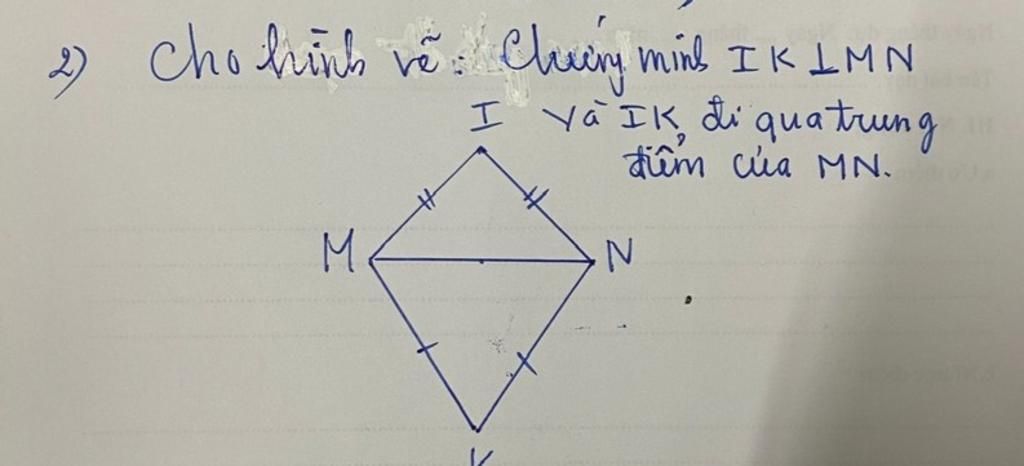 2) Cho hình vẽ: Chứng minh IK⊥MN
I và IK đi qua trung
điểm của MN.
M N
K